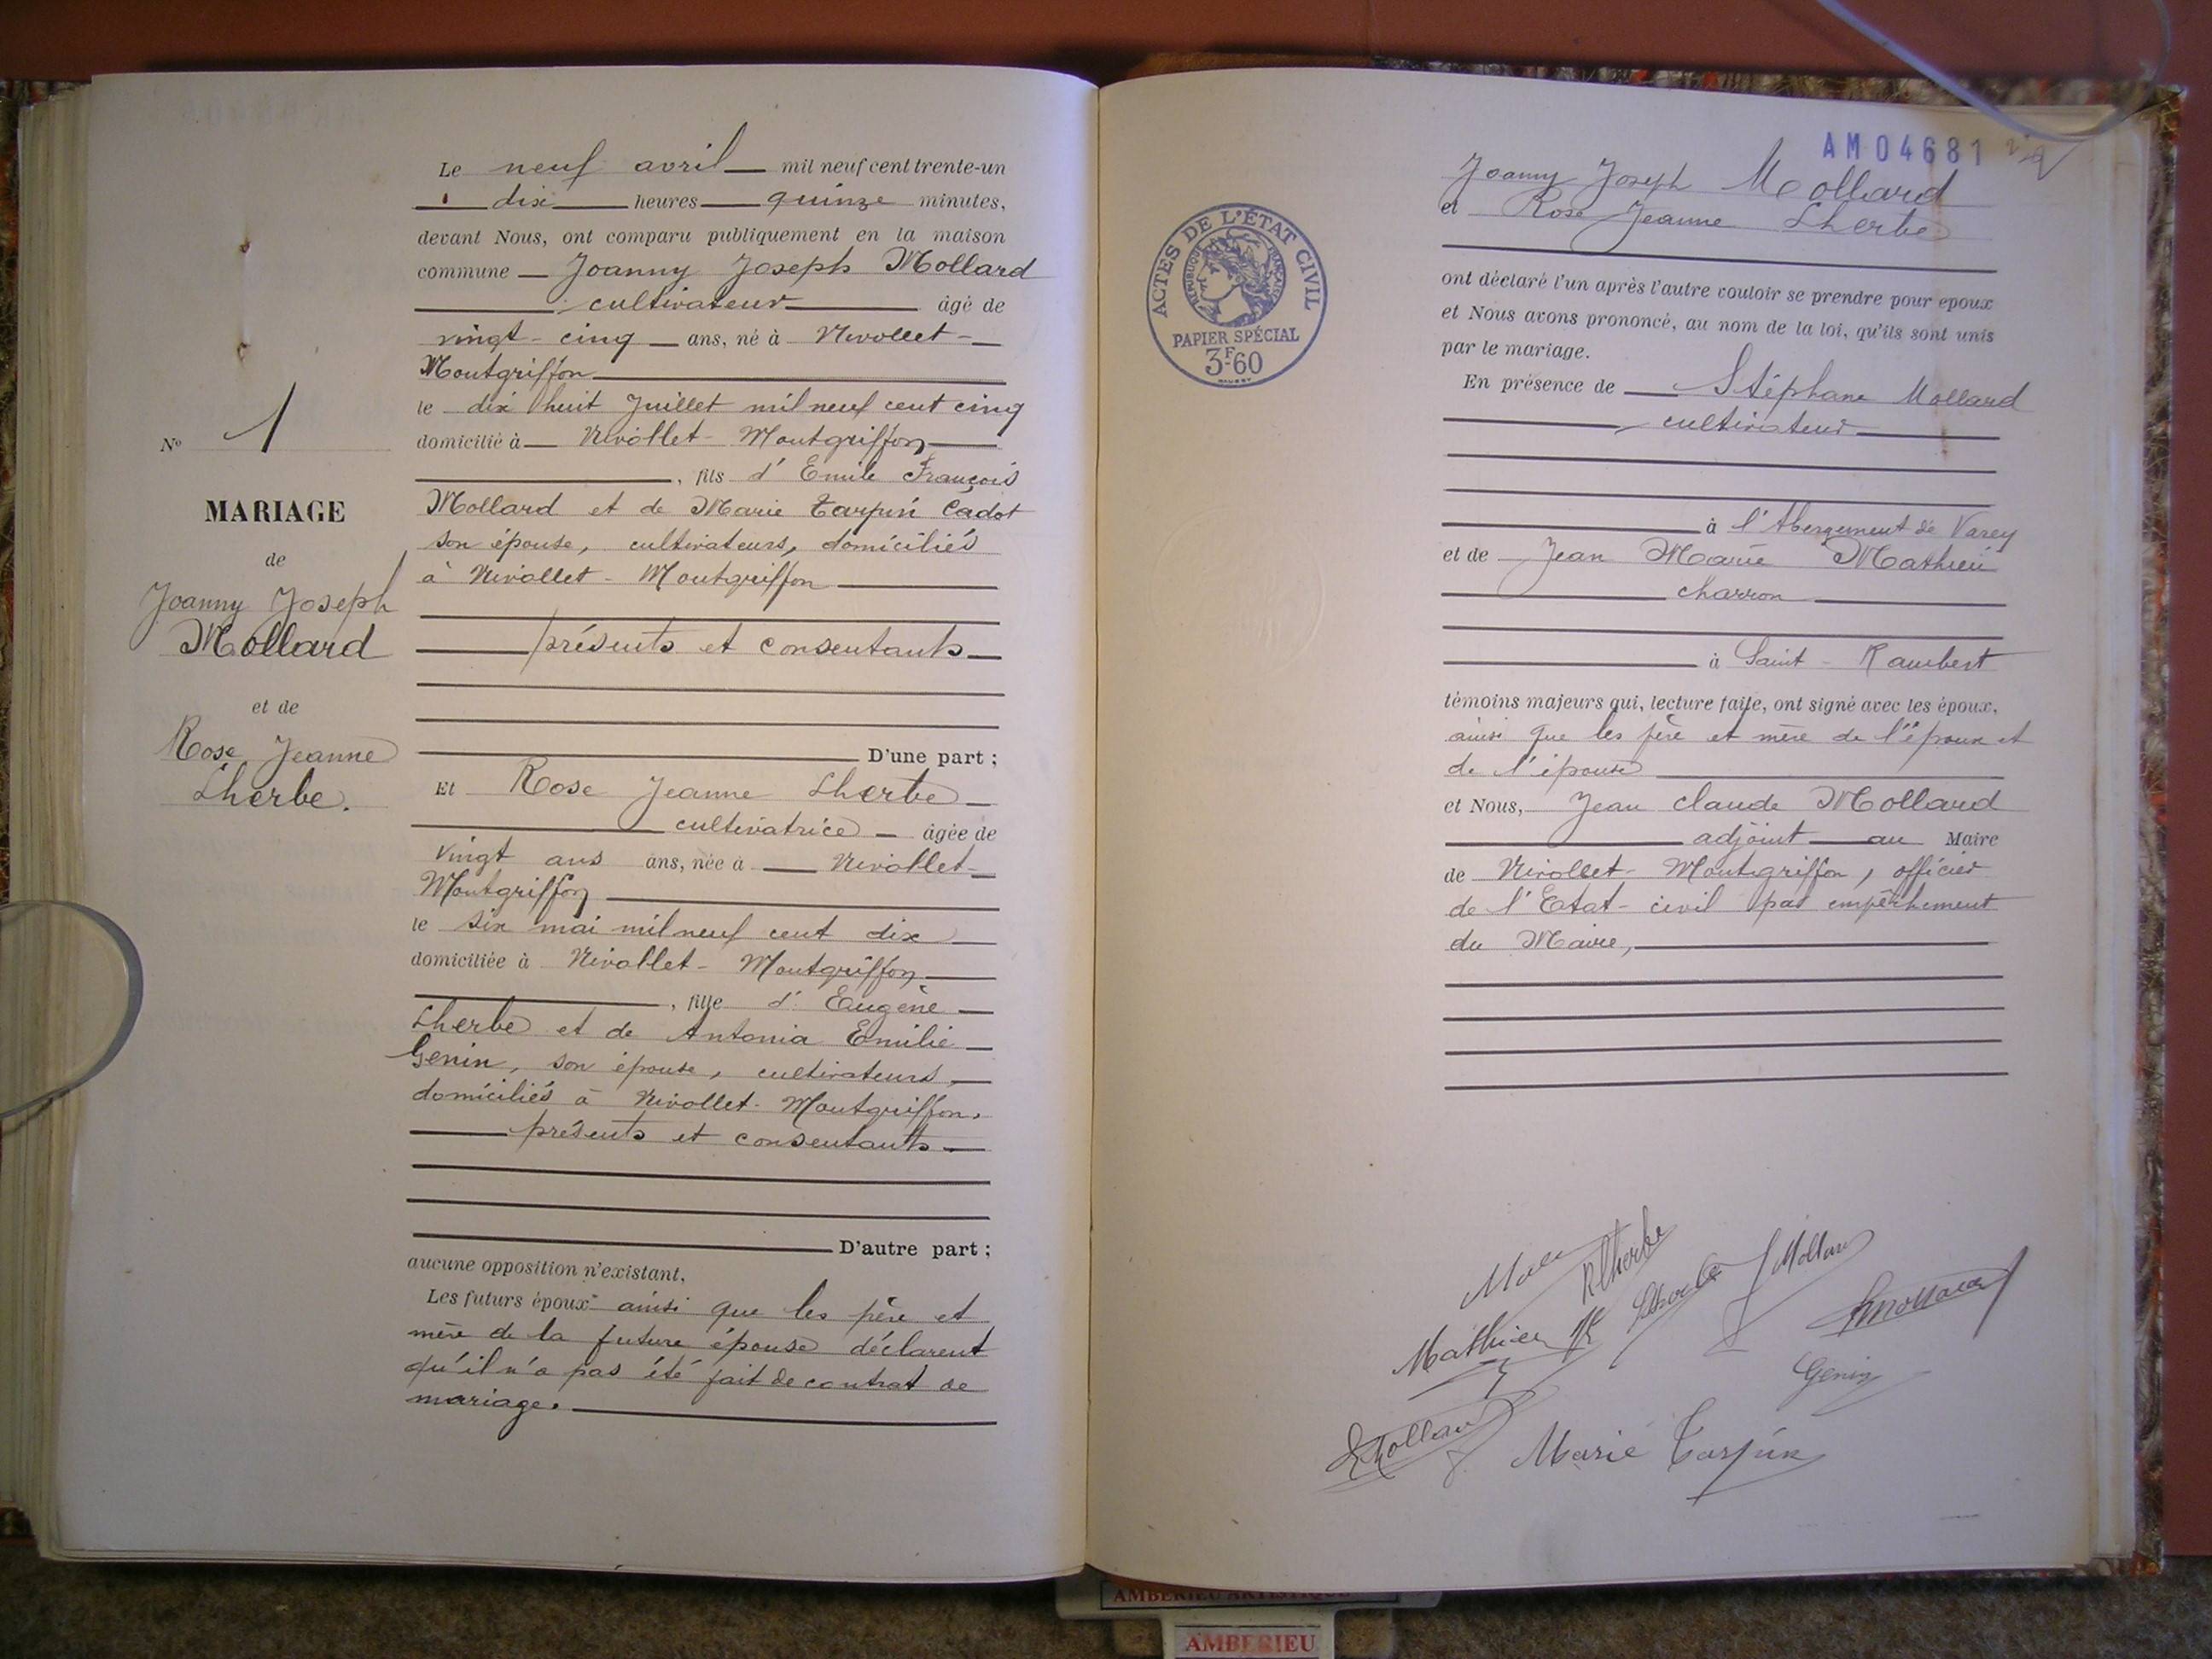 Le neuf avril mil neuf cent trente-un
dix heures quinze minutes,
devant Nous, ont comparu publiquement en la maison
commune Joanny Joseph Mollard
cultivateur âgé de
vingt-cinq ans, né à Nivollet-
Montgriffon
le dix huit Juillet mil neuf cent cinq
domicilié à Nivollet-Montgriffon
, fils d'Emile François
Mollard et de Marie Tarpin Cadot
son épouse, cultivateurs, domiciliés
à Nivollet-Montgriffon
présents et consentants
D'une part ;
Et Rose Jeanne Lherbe
cultivatrice âgée de
vingt ans ans, née à Nivollet-
Montgriffon
le six mai mil neuf cent dix
domiciliée à Nivollet-Montgriffon
, fille d'Eugène
Lherbe et de Antonia Emilie
Genin, son épouse, cultivateurs,
domiciliés à Nivollet-Montgriffon.
présents et consentants
D'autre part ;
aucune opposition n'existant,
Les futurs époux ainsi que les père et
mère de la future épouse déclarent
qu'il n'a pas été fait de contrat de
mariage.
N° 1
MARIAGE
de
Joanny Joseph
Mollard
et de
Rose Jeanne
Lherbe.
AM04681
ACTES DE L'ÉTAT CIVIL
RÉPUBLIQUE FRANÇAISE
PAPIER SPÉCIAL
3F60
Joanny Joseph Mollard
et Rose Jeanne Lherbe
ont déclaré l'un après l'autre vouloir se prendre pour epoux
et Nous avons prononcé, au nom de la loi, qu'ils sont unis
par le mariage.
En présence de Stéphane Mollard
cultivateur
à l'Abergement de Varey
et de Jean Marie Mathieu
charron
à Saint-Rambert
témoins majeurs qui, lecture faite, ont signé avec les époux,
ainsi que les père et mère de l'époux et
de l'épouse
et Nous, Jean Claude Mollard
adjoint au Maire
de Nivollet-Montgriffon, officier
de l'Etat-civil par empêchement
du Maire,
R Lherbe
Mollard
Mathieu
Lherbe
Genin
Mollard
Marie Tarpin
AMBERIEU ARTISTIQUE
AMBERIEU